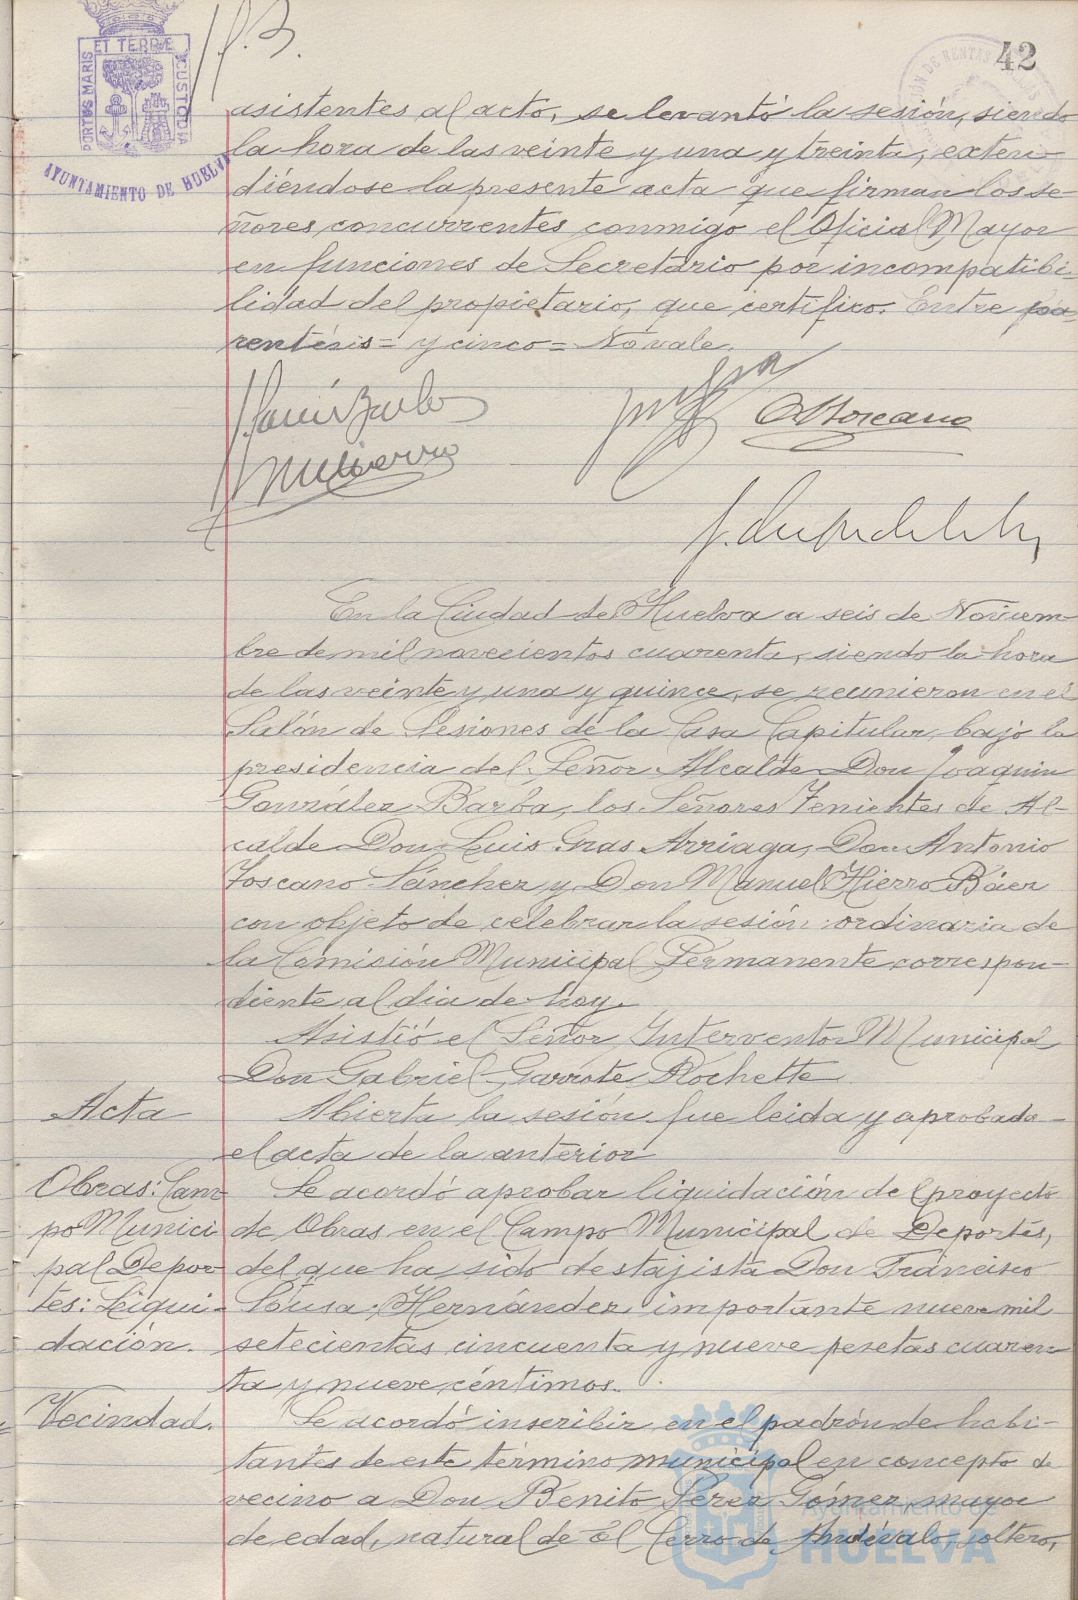 42
PORTUS MARIS ET TERRÆ CUSTODIA
AYUNTAMIENTO DE HUELVA
asistentes al acto, se levantó la sesión, siendo
la hora de las veinte y una y treinta, exten-
diéndose la presente acta que firman los se-
ñores concurrentes conmigo el Oficial Mayor
en funciones de Secretario por incompatibi-
lidad del propietario, que certifico. Entre pa-
rentésis = y cinco = No vale.
A Toscano
En la Ciudad de Huelva a seis de Noviem-
bre de mil novecientos cuarenta, siendo la hora
de las veinte y una y quince, se reunieron en el
Salón de Sesiones de la Casa Capitular, bajo la
presidencia del Señor Alcalde Don Joaquin
González Barba, los Señores Tenientes de Al-
calde Don Luis Gras Arriaga, Don Antonio
Toscano Sánchez y Don Manuel Hierro Báez
con objeto de celebrar la sesión ordinaria de
la Comisión Municipal Permanente correspon-
diente al dia de hoy.
Asistió el Señor Interventor Municipal
Don Gabriel Garrote Rochette
Acta
Abierta la sesión fue leida y aprobada
el acta de la anterior
Obras: Cam-
po Munici
pal Depor-
tes: Liqui-
dación.
Se acordó aprobar liquidación del proyecto
de Obras en el Campo Municipal de Deportes,
del que ha sido destajista Don Francisco
Sousa Hernández, importante nueve mil
setecientas cincuenta y nueve pesetas cuaren-
ta y nueve céntimos.
Vecindad.
Se acordó inscribir en el padrón de habi-
tantes de este término municipal en concepto de
vecino a Don Benito Pérez Gómez, mayor
de edad, natural de El Cerro de Andévalo, soltero,
Ayuntamiento de
HUELVA